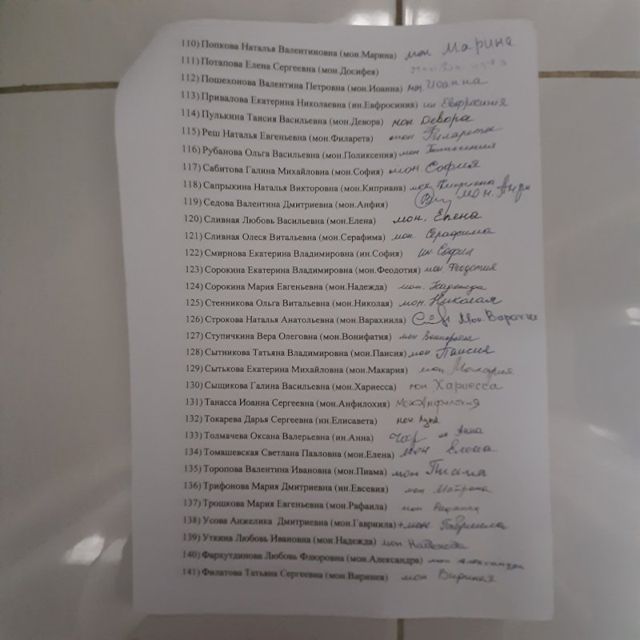 110) Попкова Наталья Валентиновна (мон.Марина) мон Марина
111) Потапова Елена Сергеевна (мон.Досифея)
112) Пошехонова Валентина Петровна (мон.Иоанна) мон Иоанна
113) Привалова Екатерина Николаевна (ин.Евфросиния) ин Евфросиния
114) Пулькина Таисия Васильевна (мон.Девора) мон Девора
115) Реш Наталья Евгеньевна (мон.Филарета) мон Филарета
116) Рубанова Ольга Васильевна (мон.Поликсения) мон
117) Сабитова Галина Михайловна (мон.София) мон София
118) Сапрыкина Наталья Викторовна (мон.Киприана) мон Киприана
119) Седова Валентина Дмитриевна (мон.Анфия) мон.
120) Сливная Любовь Васильевна (мон.Елена) мон. Елена
121) Сливная Олеся Витальевна (мон.Серафима) мон Серафима
122) Смирнова Екатерина Владимировна (ин.София) ин София
123) Сорокина Екатерина Владимировна (мон.Феодотия) мон Феодотия
124) Сорокина Мария Евгеньевна (мон.Надежда) мон.
125) Стенникова Ольга Витальевна (мон.Николая) мон. Николая
126) Строкова Наталья Анатольевна (мон.Варахиила) Мон.
127) Ступичкина Вера Олеговна (мон.Вонифатия) мон
128) Сытникова Татьяна Владимировна (мон.Паисия) мон Паисия
129) Сытькова Екатерина Михайловна (мон.Макария) мон Макария
130) Сыщикова Галина Васильевна (мон.Хариесса) мон Хариесса
131) Танасса Иоанна Сергеевна (мон.Анфилохия)
132) Токарева Дарья Сергеевна (ин.Елисавета)
133) Толмачева Оксана Валерьевна (ин.Анна) Анна
134) Томашевская Светлана Павловна (мон.Елена) мон Елена
135) Торопова Валентина Ивановна (мон.Пиама) мон Пиама
136) Трифонова Мария Дмитриевна (ин.Евсевия) мон
137) Трошкова Мария Евгеньевна (мон.Рафаила) мон
138) Усова Анжелика Дмитриевна (мон.Гавриила) +мон Гавриила
139) Уткина Любовь Ивановна (мон.Надежда) мон Надежда
140) Фархутдинова Любовь Флюровна (мон.Александра) мон Александра
141) Филатова Татьяна Сергеевна (мон.Виринея) мон Виринея